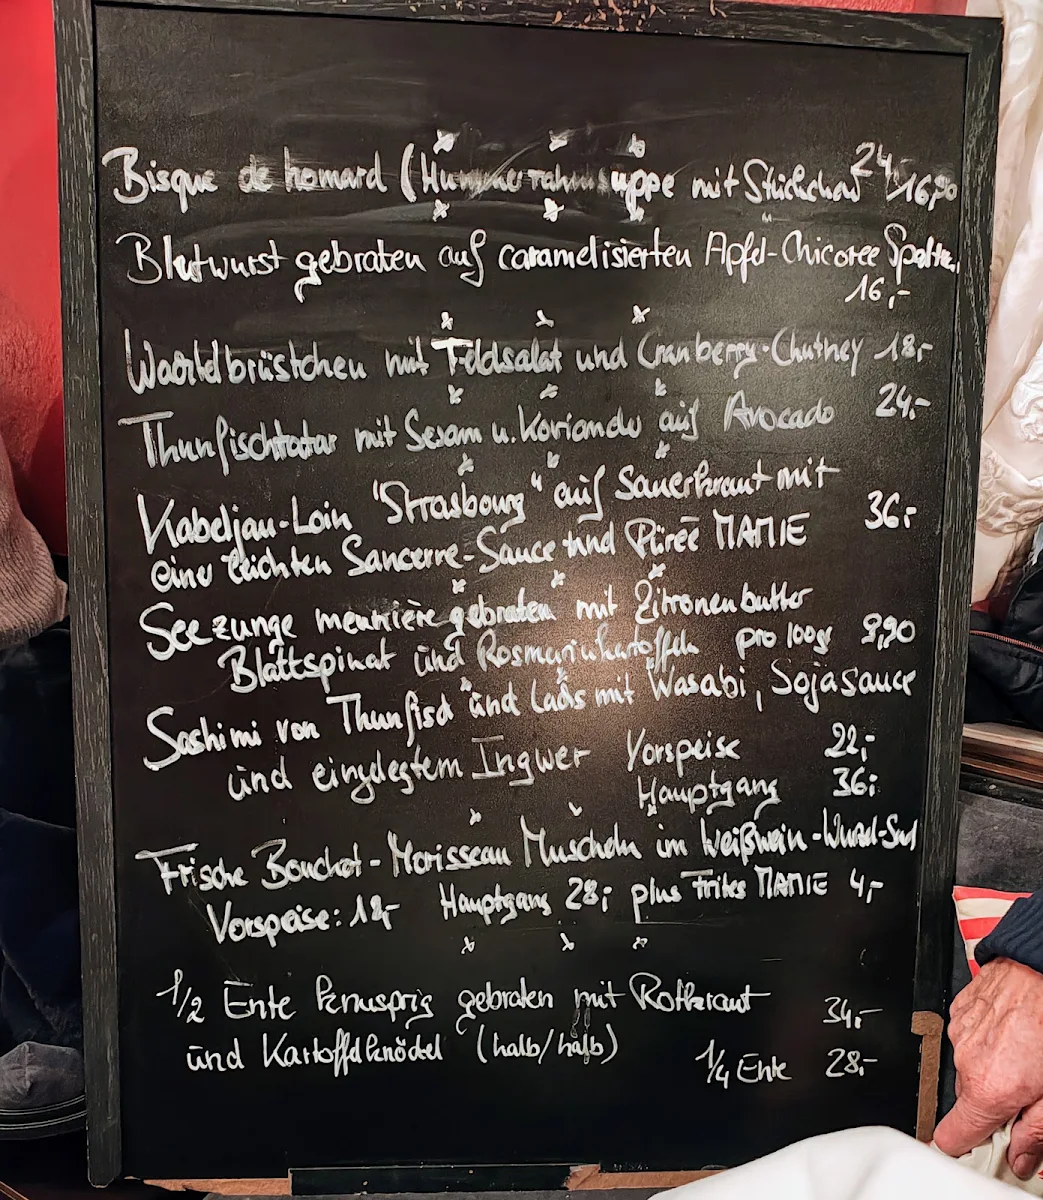 Bisque de homard (Hummerrahmsuppe mit Stückchen 24,- /16,90
Blutwurst gebraten auf caramelisierten Apfel-Chicoree Spalten
16,-
Wachtelbrüstchen mit Feldsalat und Cranberry-Chutney 18,-
Thunfischtatar mit Sesam u. Koriander auf Avocado 24,-
Kabeljau-Loin "Strasbourg" auf Sauerkraut mit
einer leichten Sancerre-Sauce und Püree MAMIE 36,-
Seezunge meunière gebraten mit Zitronenbutter
Blattspinat und Rosmarinkartoffeln pro 100g 9,90
Sashimi von Thunfisch und Lachs mit Wasabi, Sojasauce
und eingelegtem Ingwer Vorspeise 22,-
Hauptgang 36,-
Frische Bouchot-Morisseau Muscheln im Weißwein-Wurzel-Sud
Vorspeise: 18,- Hauptgang 28,- plus Frites MAMIE 4,-
1/2 Ente knusprig gebraten mit Rotkraut 34,-
und Kartoffelknödel (halb/halb)
1/4 Ente 28,-